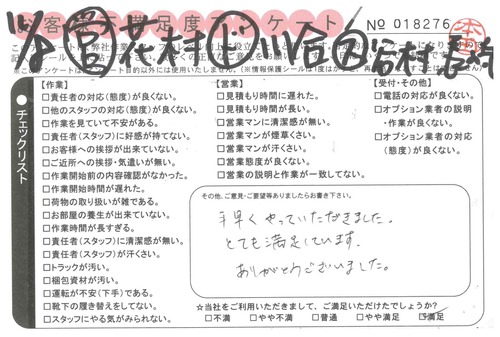 お客様満足度アンケート
No 018276
チェックリスト
【作業】
□責任者の対応(態度)が良くない。
□他のスタッフの対応(態度)が良くない。
□作業を見ていて不安がある。
□責任者(スタッフ)に好感が持てない。
□お客様への挨拶が出来ていない。
□ご近所への挨拶・気遣いが無い。
□作業開始前の内容確認がなかった。
□作業開始時間が遅れた。
□荷物の取り扱いが雑である。
□お部屋の養生が出来ていない。
□作業時間が長すぎる。
□責任者(スタッフ)に清潔感が無い。
□責任者(スタッフ)が汗くさい。
□トラックが汚い。
□梱包資材が汚い。
□運転が不安(下手)である。
□靴下の履き替えをしてない。
□スタッフにやる気がみられない。
【営業】
□見積もり時間に遅れた。
□見積もり時間が長い。
□営業マンに清潔感が無い。
□営業マンが煙草くさい。
□営業マンが汗くさい。
□営業態度が良くない。
□営業の説明と作業が一致してない。
【受付・その他】
□電話の対応が良くない。
□オプション業者の説明
・作業が良くない。
□オプション業者の対応
(態度)が良くない。
その他、ご意見・ご要望等ありましたらお書き下さい。
手早くやっていただきました。
とても満足しています。
ありがとうございました。
☆当社をご利用いただきまして、ご満足いただけたでしょうか?
□不満 □やや不満 □普通 □やや満足 □満足